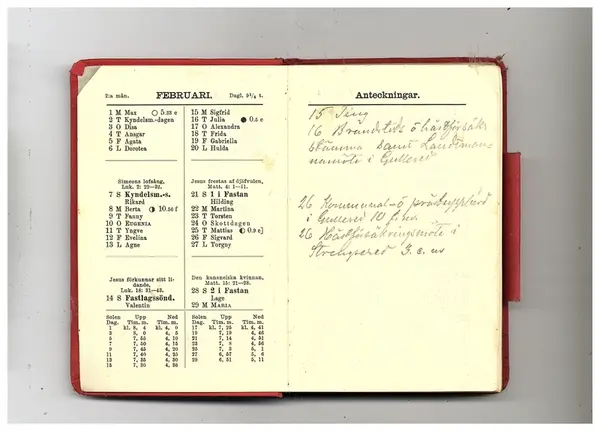 2:a mån. FEBRUARI. Dagl. 9¼ t.
1 M Max 5.33 e
2 T Kyndelsm.-dagen
3 O Disa
4 T Ansgar
5 F Agata
6 L Dorotea
Simeons lofsång,
Luk. 2: 22—32.
7 S Kyndelsm.-s.
Rikard
8 M Berta 10.56 f
9 T Fanny
10 O EUGENIA
11 T Yngve
12 F Evelina
13 L Agne
Jesus förkunnar sitt li-
dande,
Luk. 18: 31—43.
14 S Fastlagssönd.
Valentin
15 M Sigfrid
16 T Julia 0.5 e
17 O Alexandra
18 T Frida
19 F Gabriella
20 L Hulda
Jesus frestas af djäfvulen,
Matt. 4: 1—11.
21 S 1 i Fastan
Hilding
22 M Martina
23 T Torsten
24 O Skottdagen
25 T Mattias 0.9 e]
26 F Sigvard
27 L Torgny
Den kananeiska kvinnan,
Matt. 15: 21—28.
28 S 2 i Fastan
Lage
29 M MARIA
Solen Upp Ned
Dag. Tim. m. Tim. m.
1 kl. 8, 4 kl. 4, 0
3 8, 0 4, 5
5 7, 55 4, 10
7 7, 50 4, 15
9 7, 45 4, 20
11 7, 40 4, 25
13 7, 35 4, 30
15 7, 30 4, 36
Solen Upp Ned
Dag. Tim. m. Tim. m.
17 kl. 7, 25 kl. 4, 41
19 7, 19 4, 46
21 7, 14 4, 51
23 7, 8 4, 56
25 7, 3 5, 1
27 6, 57 5, 6
29 6, 51 5, 11
Anteckningar.
15 Ting
16 Brandstods ö hästförsäkr
stämma samt Landtmanna
möte i Gullered
26 Kommunal ö
i Gullered 10 f.m.
26 Hästförsäkringsmöte i
Strengsered 3 e. m